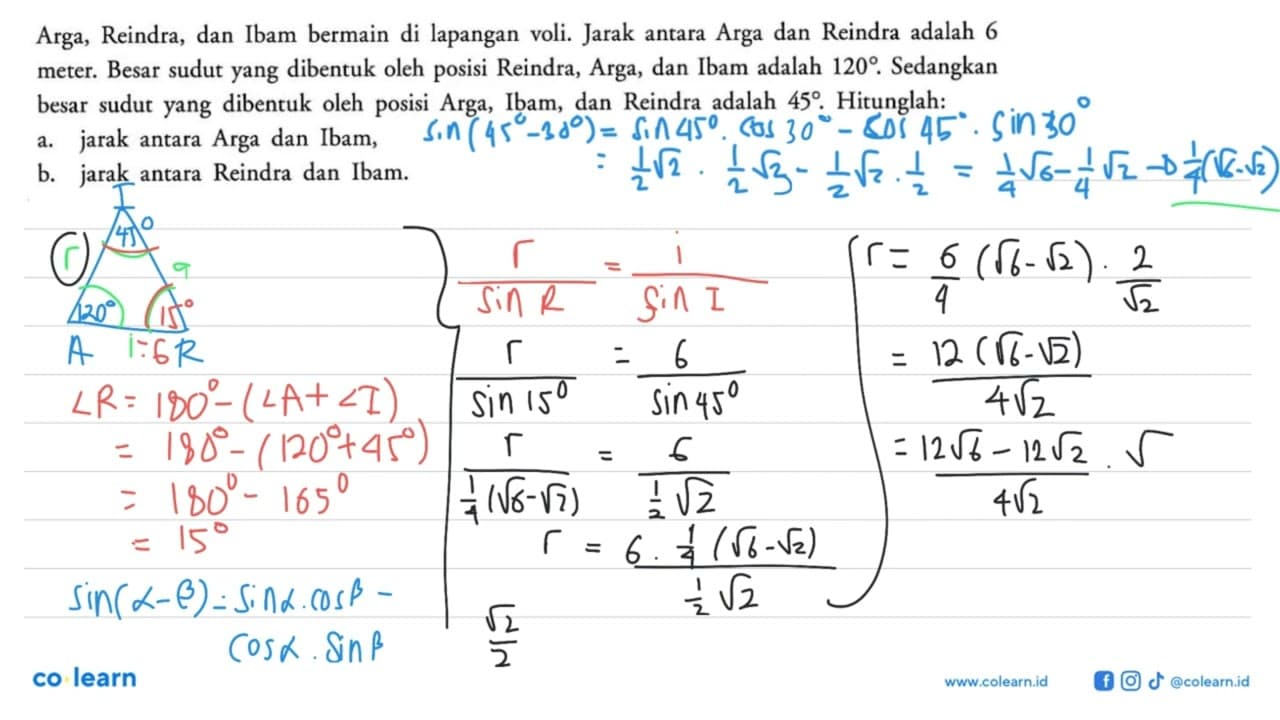 Arga, Reindra, dan Ibam bermain di lapangan voli. Jarak antara Arga dan Reindra adalah 6
meter. Besar sudut yang dibentuk oleh posisi Reindra, Arga, dan Ibam adalah 120°. Sedangkan
besar sudut yang dibentuk oleh posisi Arga, Ibam, dan Reindra adalah 45°. Hitunglah:
a. jarak antara Arga dan Ibam,
b. jarak antara Reindra dan Ibam.
sin(45°-30°) = sin 45°. cos 30° - cos 45°. sin 30°
= 1/2 √2 . 1/2 √3 - 1/2 √2 . 1/2 = 1/4 √6 - 1/4 √2 → 1/4 (√6-√2)
I
45°
r
a
120°
15°
A i=6 R
∠R = 180° - (∠A + ∠I)
= 180° - (120° + 45°)
= 180° - 165°
= 15°
sin(α-β) = sin α . cos β -
cos α . sin β
r/sin R = i/sin I
r/sin 15° = 6/sin 45°
r/(1/4 (√6-√2)) = 6/(1/2 √2)
r = (6 . 1/4 (√6-√2))/(1/2 √2)
√2/2
r = 6/4 (√6-√2) . 2/√2
= 12 (√6-√2)/4√2
= (12√6 - 12√2)/4√2 . √
co learn
www.colearn.id
@colearn.id